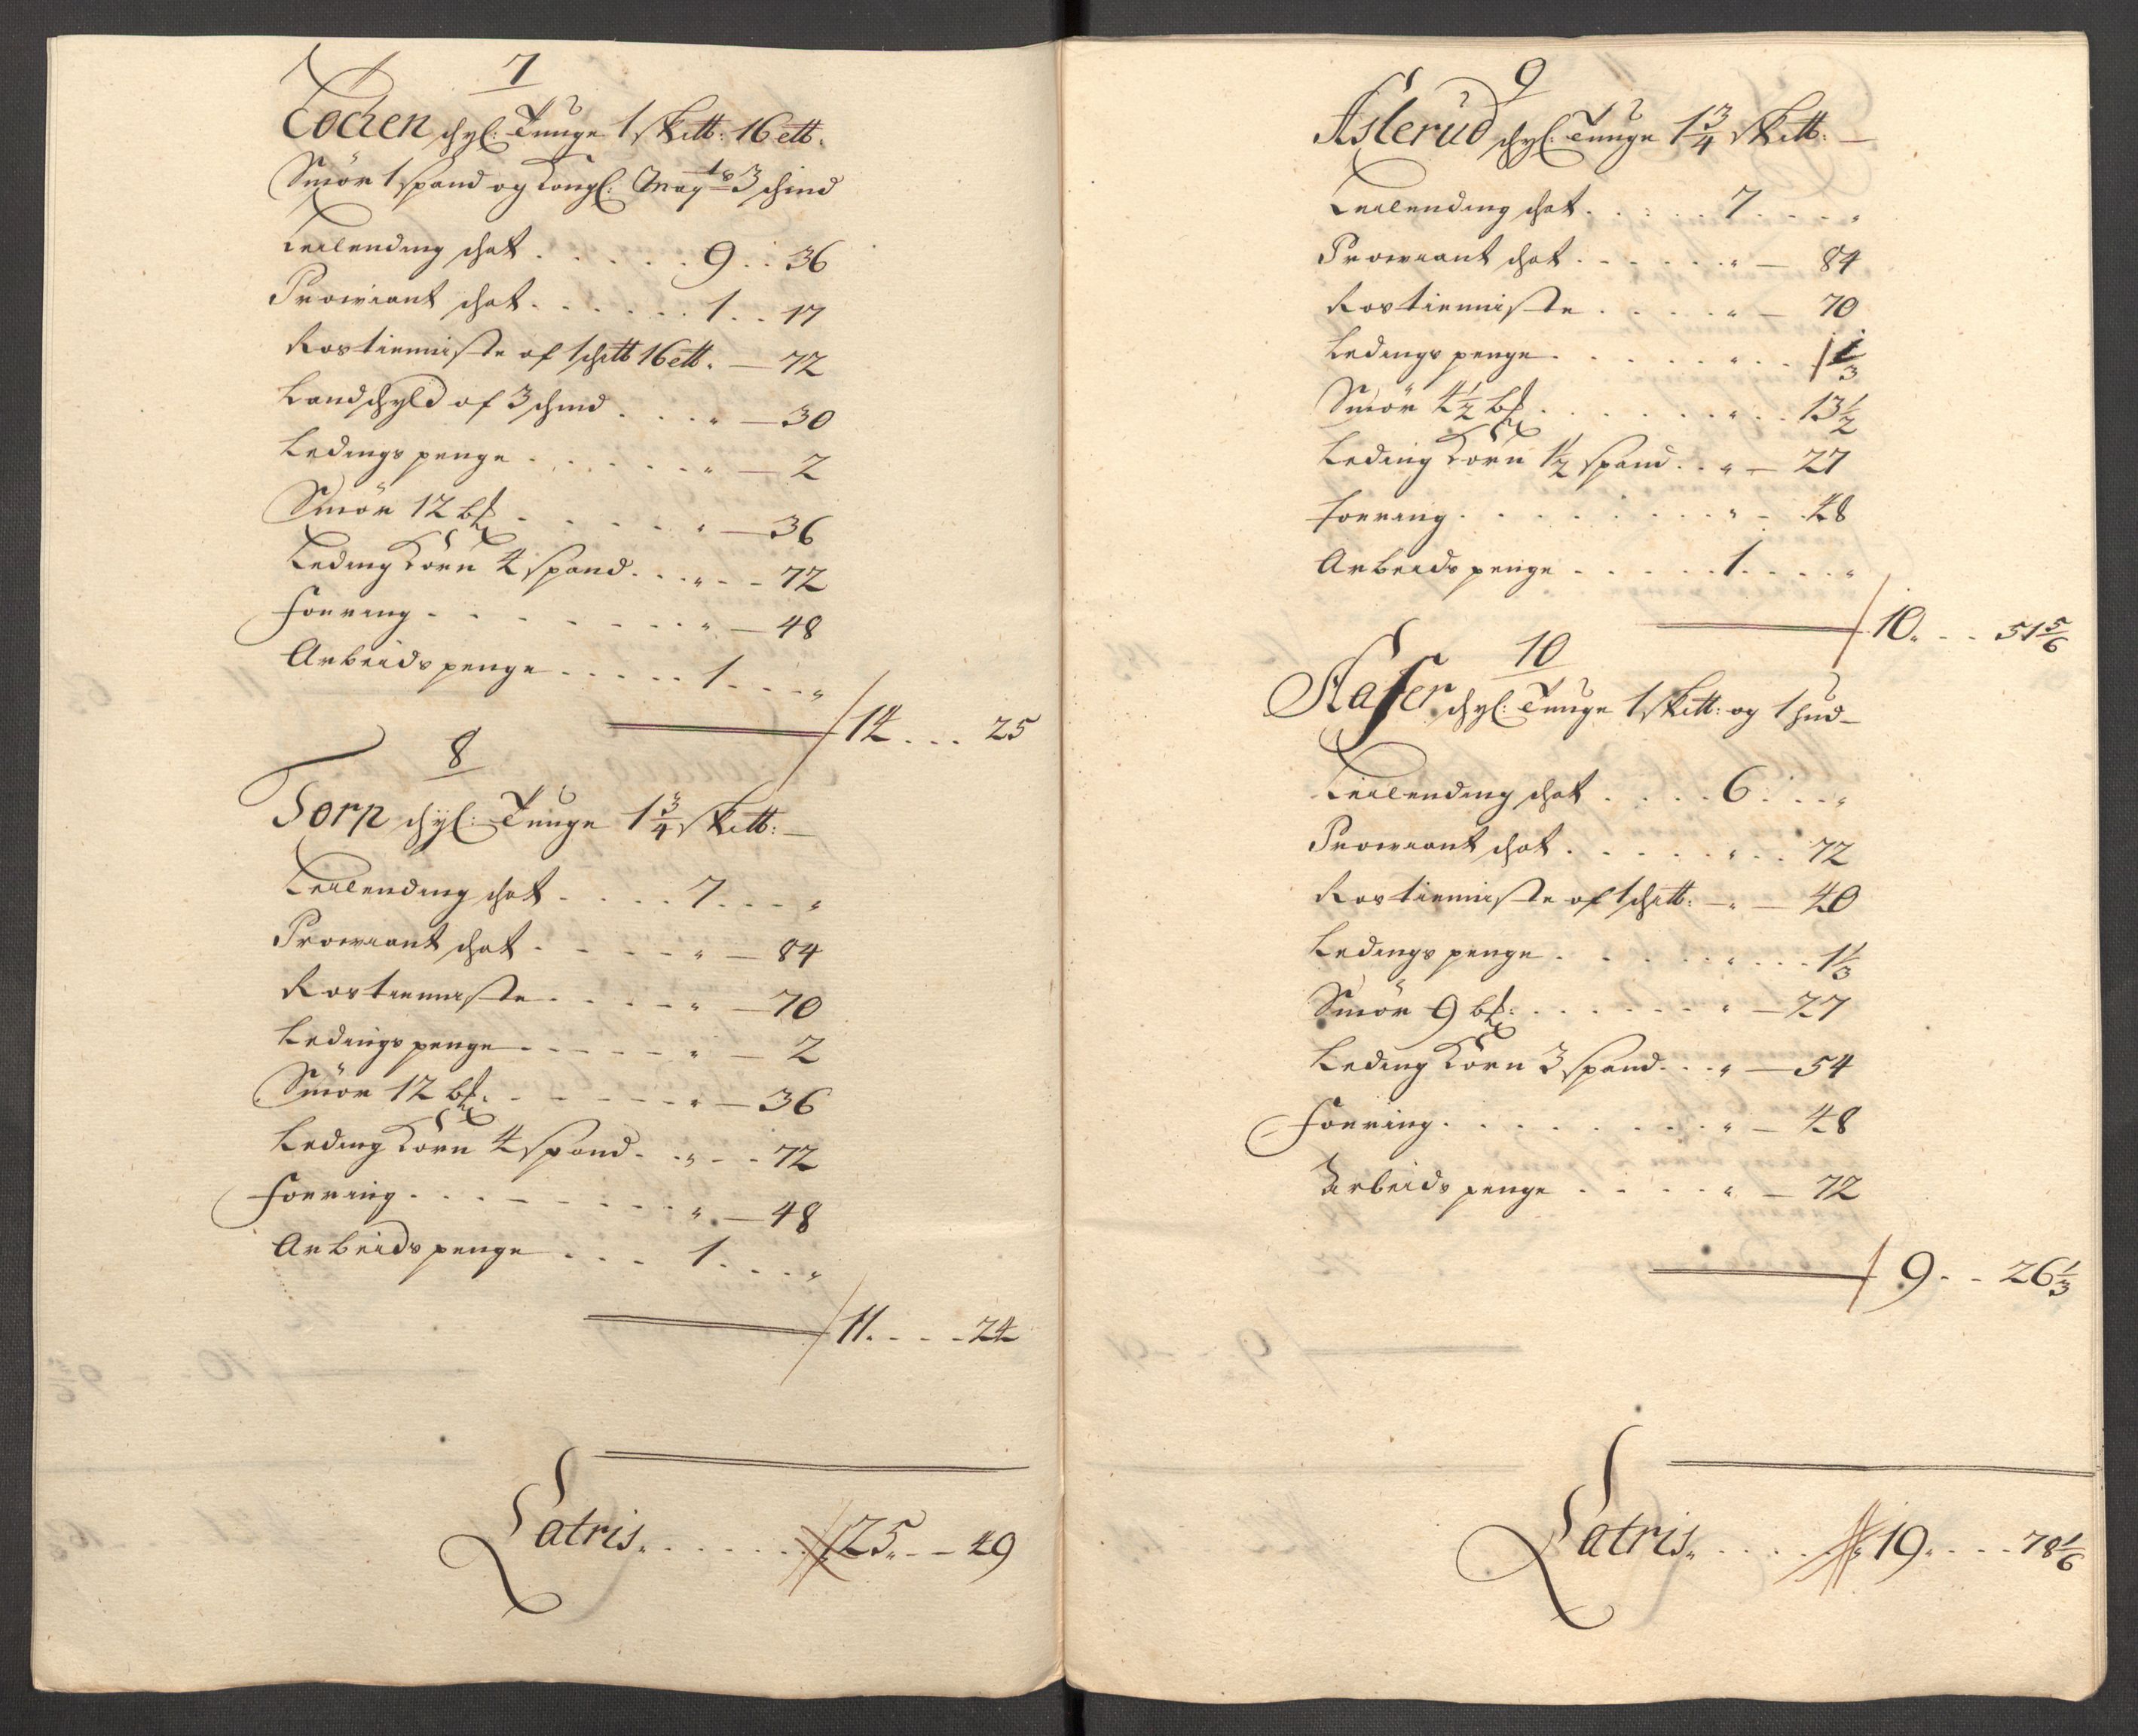 7
Lochen schyl: Tunge 1 sk℔: 16 ℔:
Smör 1 spand og Kongl: May^ts 3 schind
Leilending schat . . . . . . 9 . . 36
Proviant schat . . . . . . 1 . . 17
Rostienniste af 1 sch℔ 16 ℔. — 72
Landschyld af 3 schind . . . " — 30
Ledings penge . . . . . . . " — 2
Smör 12 b℔ . . . . . . " — 36
Leding Korn 4 spand . . . " - - 72
Foering - - - - - - - - " — 48
Arbeids penge . . . . . 1 . . . "
14 . . . 25
8
Torp schyl: Tunge 1 3/4 sk℔: —
Leilending schat . . . . 7 . . . "
Proviant schat - - - - - " — 84
Rostienniste . - - - - " — 70
Ledings penge - - - - - " — 2
Smör 12 b℔: - - - - - - " — 36
Leding Korn 4 spand - . " - - 72
Foering . . . - - - - - " . — 48
Arbeids penge . . . 1 . . . "
11 . - - - 24
Latris . . . . . . . 25 . - - 49
9
Aslerud schyl: Tunge 1 3/4 sk℔: —
Leilending schat . . . . . . 7 . . . . "
Proviant schat . . - - - . . " — 84
Rostienniste . . . . . " — 70
Ledings penge . . . . . . . " . . . 1 1/3
Smör 4 1/2 b℔ . . . . . . . " . . 13 1/2
Leding Korn 1 1/2 spand . . " — 27
Foering . . . . . . . . . " — 48
Arbeids penge - . . . . . 1 . . . . "
10 . - - 51 5/6
10
Aaser schyl: Tunge 1 sk℔: og 1 hud —
Leilending schat . . . . 6 . . . "
Proviant schat . - . . . . " . . 72
Rostienniste af 1 sch℔: — " — 40
Ledings penge . . . . . . . " . . . 1 1/3
Smör 9 b℔: . . . . . - - . " — 27
Leding Korn 3 spand . . . " — 54
Foering . . . . . . . . . . " — 48
Arbeids penge . - . . . " — 72
9 - - 26 1/3
Latris . . . . . . 19 . - - - 78 1/6